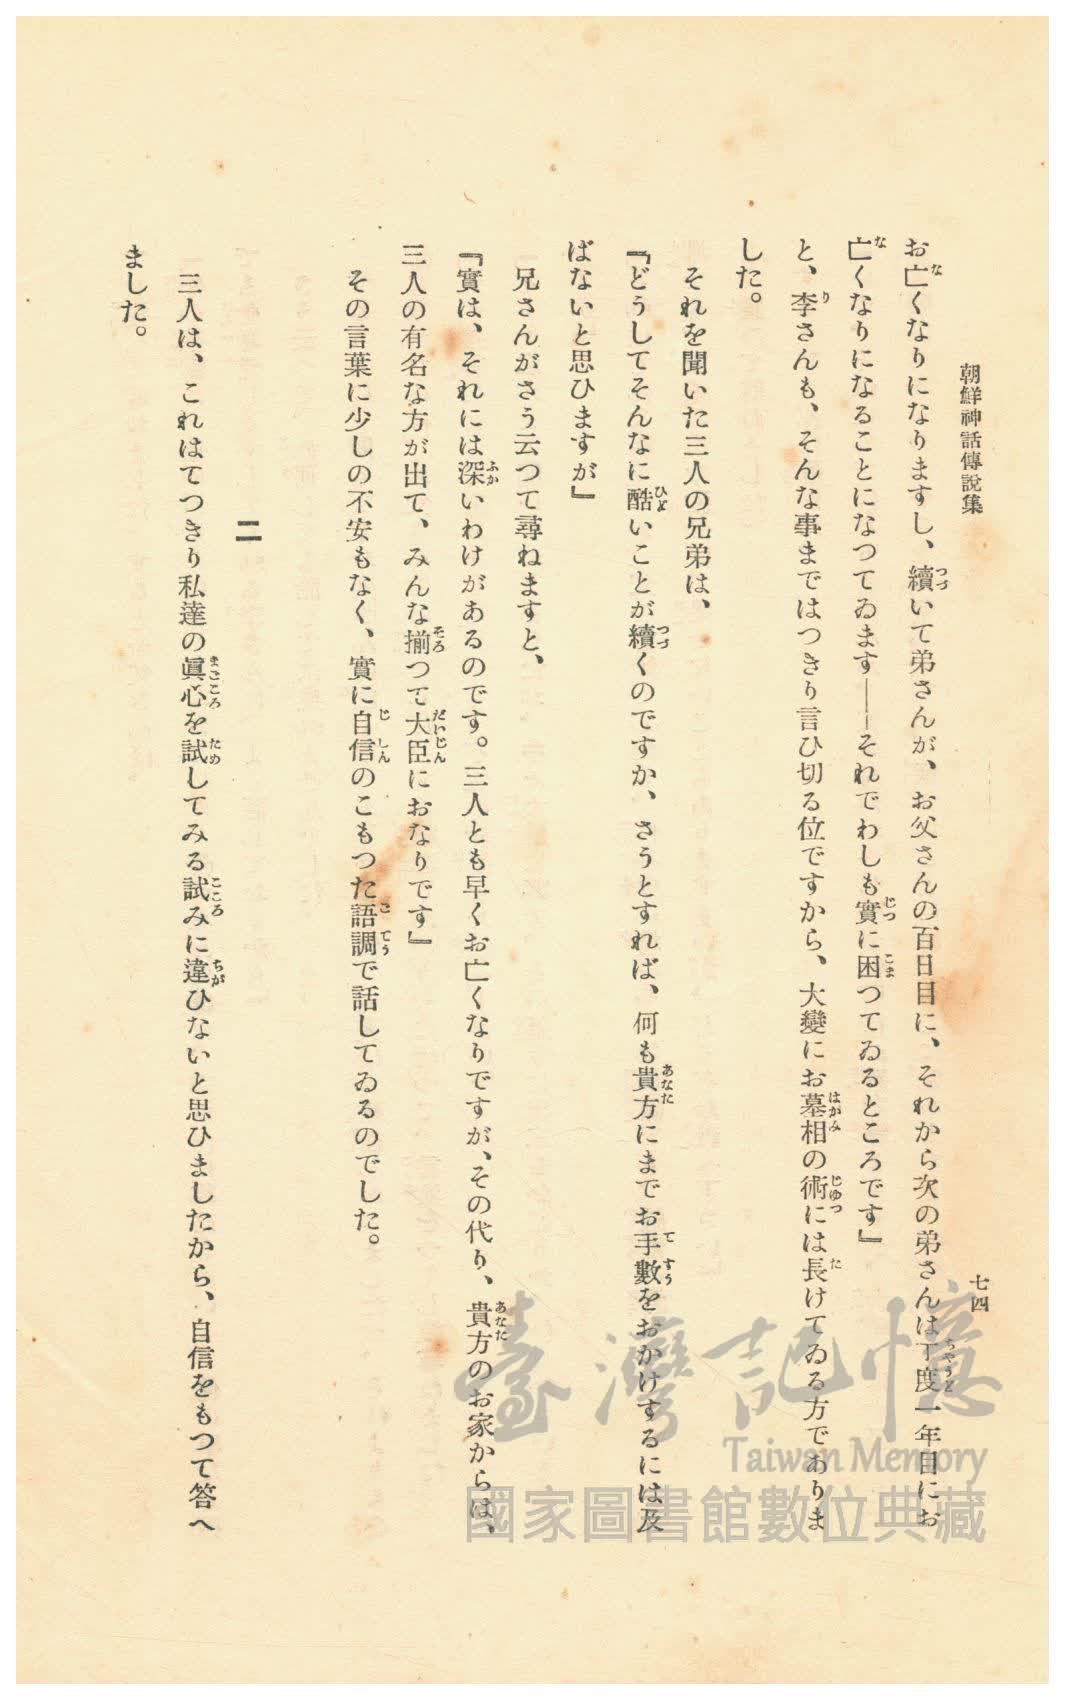 朝鮮神話傳說集
七四
お亡くなりになりますし、續いて弟さんが、お父さんの百日目に、それから次の弟さんは丁度一年目にお
亡くなりになることになつてゐます――それでわしも實に困つてゐるところです』
と、李さんも、そんな事まではつきり言ひ切る位ですから、大變にお墓相の術には長けてゐる方でありま
した。
それを聞いた三人の兄弟は、
『どうしてそんなに酷いことが續くのですか、さうとすれば、何も貴方にまでお手數をおかけするには及
ばないと思ひますが』
兄さんがさう云つて尋ねますと、
『實は、それには深いわけがあるのです。三人とも早くお亡くなりですが、その代り、貴方のお家からは、
三人の有名な方が出て、みんな揃つて大臣におなりです』
その言葉に少しの不安もなく、實に自信のこもつた語調で話してゐるのでした。
二
三人は、これはてつきり私達の眞心を試してみる試みに違ひないと思ひましたから、自信をもつて答へ
ました。
臺灣記憶
Taiwan Memory
國家圖書館數位典藏